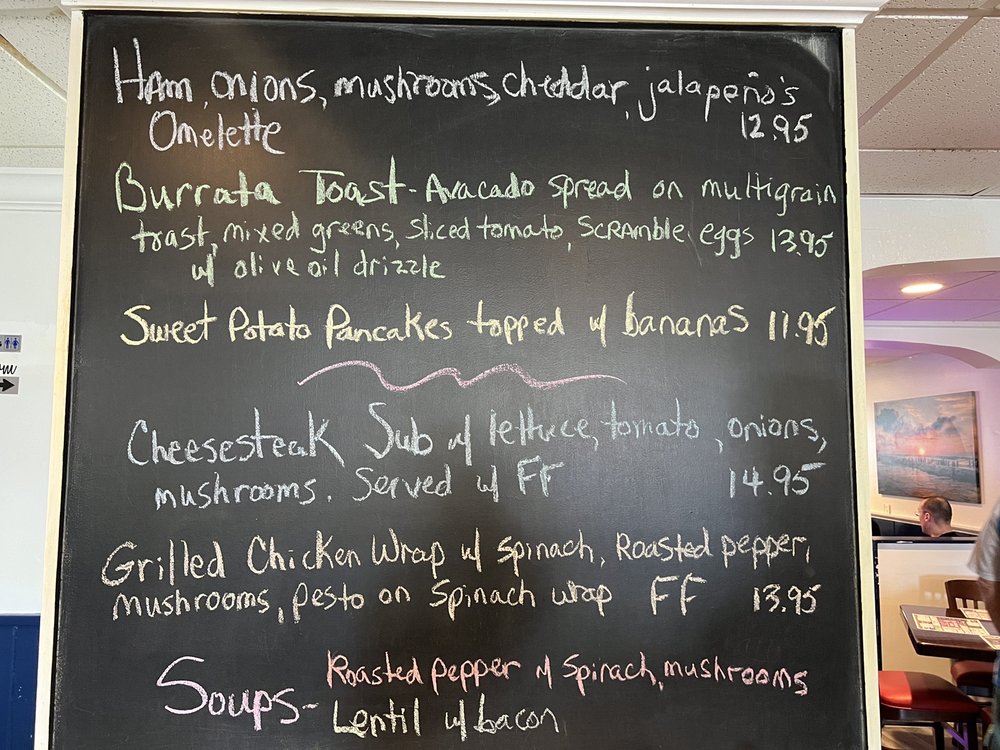 Ham, onions, mushrooms, cheddar, jalapeño's
Omelette 12.95
Burrata Toast - Avacado spread on multigrain
toast, mixed greens, sliced tomato, scramble eggs 13.95
w/ olive oil drizzle
Sweet Potato Pancakes topped w/ bananas 11.95
Cheesesteak Sub w/ lettuce, tomato, onions,
mushrooms. Served w/ FF 14.95
Grilled Chicken Wrap w/ spinach, Roasted pepper,
mushrooms, pesto on spinach wrap FF 13.95
Soups - Roasted pepper w/ spinach, mushrooms
Lentil w/ bacon